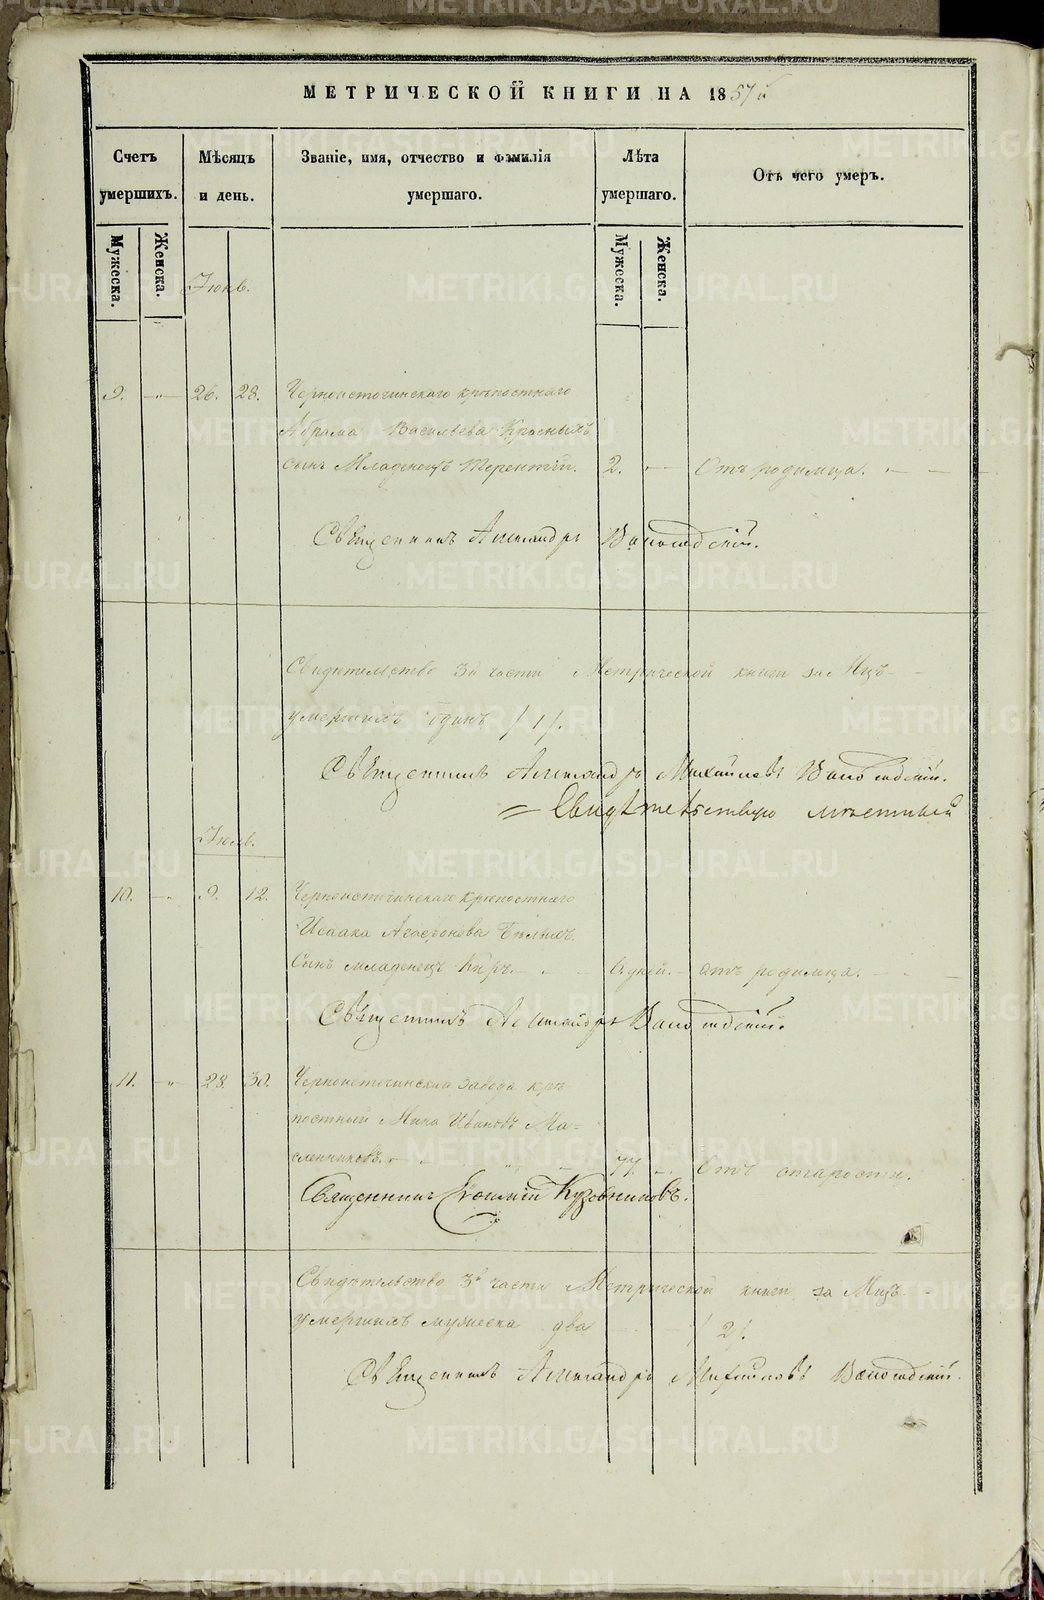 МЕТРИЧЕСКОЙ КНИГИ НА 1857й
Счетъ умершихъ.
Мѣсяцъ и день.
Званіе, имя, отчество и фамилія умершаго.
Лѣта умершаго.
Отъ чего умеръ.
Мужеска.
Женска.
Мужеска.
Женска.
Іюнь.
9. -"- 26. 28. Черноисточинскаго крѣпостнаго
Абрама Васильева Красныхъ
сынъ Младенецъ Терентій. 2. Отъ родимца.
Священникъ Александръ
Свидѣтельство 3й части Метрической книги за Мцъ
умершихъ одинъ /1/.
Священникъ Александръ Михайловъ
Свидѣтельствую мѣстный
Іюль.
10. -"- 9. 12. Черноисточинскаго крѣпостнаго
Исаака Агафонова Бѣлыхъ
Сынъ младенецъ Киръ. дней. Отъ родимца.
Священникъ Александръ
11. -"- 28. 30. Черноисточинскаго завода крѣ
постный Мина Ивановъ Ма=
сленниковъ. 77. Отъ старости.
Священникъ Кузовниковъ.
Свидѣтельство 3й части Метрической книги за Мцъ
умершихъ мужеска два /2/.
Священникъ Александръ Михайловъ
METRIKI.GASO-URAL.RU